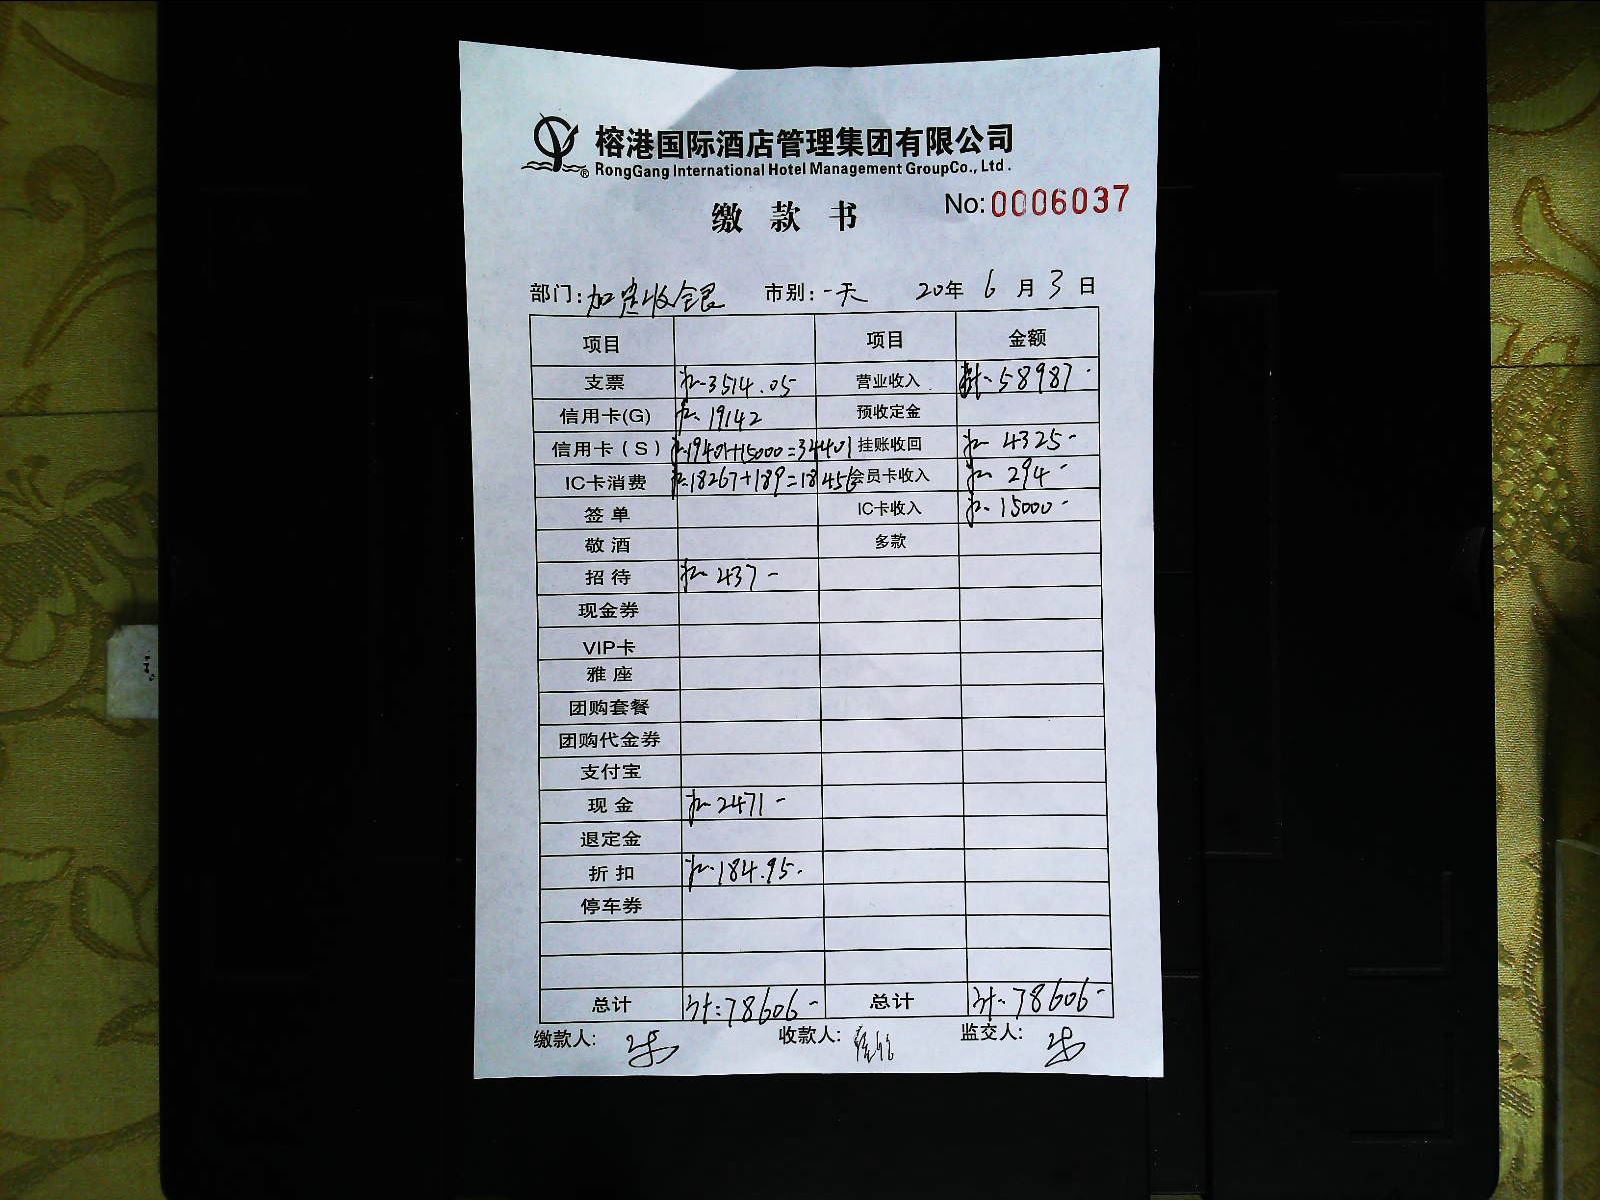 榕港国际酒店管理集团有限公司
RongGang International Hotel Management GroupCo., Ltd.
No:0006037
缴 款 书
部门: 加营收银 市别: 一天 20年 6月 3日
项目 项目 金额
支票 3514.05 营业收入 58987-
信用卡(G) 19142 预收定金
信用卡(S) 19401+15000=34401 挂账收回 4325-
IC卡消费 18267+189=18456 会员卡收入 294-
签单 IC卡收入 15000-
敬酒 多款
招待 437-
现金券
VIP卡
雅座
团购套餐
团购代金券
支付宝
现金 2471-
退定金
折扣 184.95-
停车券
总计 计:78606- 总计 计:78606-
缴款人: 收款人: 监交人: